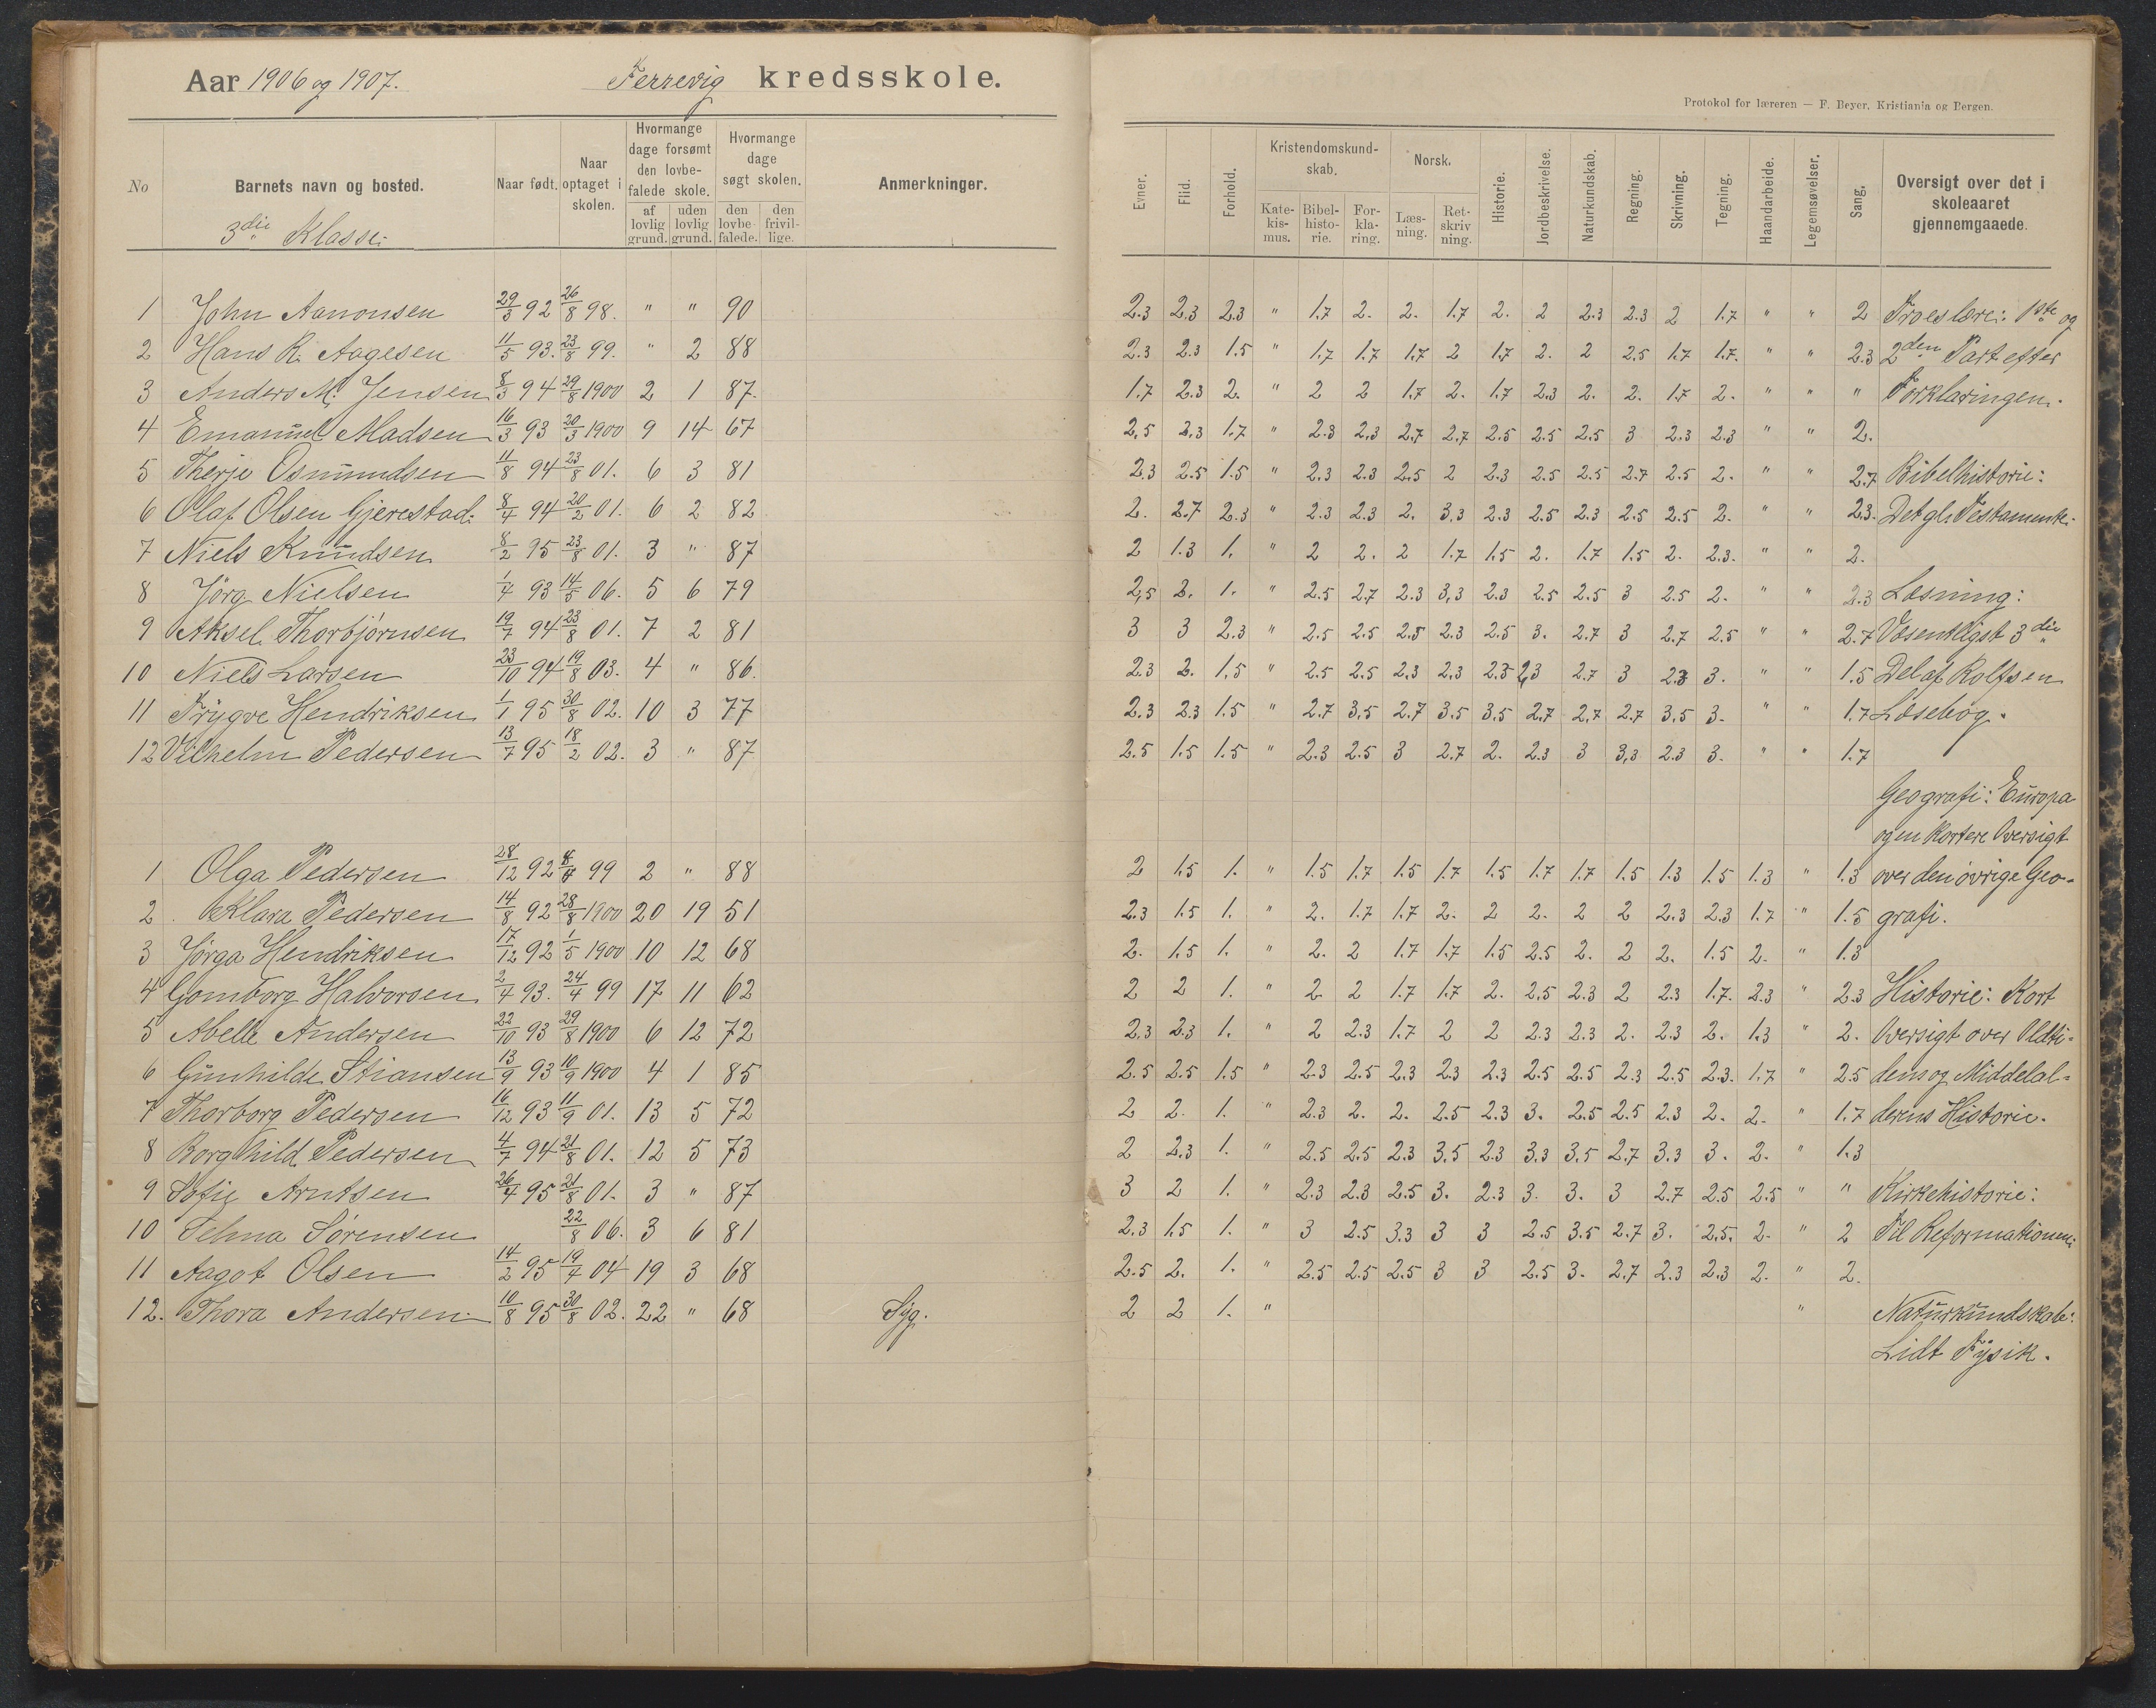 Aar 1906 og 1907. Ferrevig kredsskole.
Protokol for læreren — F. Beyer, Kristiania og Bergen.
No Barnets navn og bosted. Naar født. Naar optaget i skolen. Hvormange dage forsømt den lovbefalede skole. af lovlig grund. uden lovlig grund. Hvormange dage søgt skolen. den lovbefalede. den frivillige. Anmerkninger. Evner. Flid. Forhold. Kristendomskundskab. Katekismus. Bibelhistorie. Forklaring. Norsk. Læsning. Retskrivning. Historie. Jordbeskrivelse. Naturkundskab. Regning. Skrivning. Tegning. Haandarbeide. Legemsøvelser. Sang. Oversigt over det i skoleaaret gjennemgaaede.
3die Klasse:
1 John Aanonsen 29/3 92 26/8 98. " " 90 2.3 2.3 2.3 " 1.7 2. 2. 1.7 2. 2 2.3 2.3 2 1.7 " " 2 Troeslære: 1ste og
2 Hans R. Aagesen 11/5 93. 23/8 99. " 2 88 2.3 2.3 1.5 " 1.7 1.7 1.7 2 1.7 2. 2 2.5 1.7 1.7. " " 2.3 2den Part efter
3 Anders M. Jensen 8/3 94 29/8 1900 2 1 87. 1.7 2.3 2. " 2 2 1.7 2. 1.7 2.3 2. 2. 1.7 2. " " " Forklaringen.
4 Emanuel Madsen 16/3 93 20/3 1900 9 14 67 2,5 2.3 1.7 " 2.3 2.3 2.7 2.7 2.5 2.5 2.5 3 2.3 2.3 " " 2.
5 Therje Osmundsen 11/8 94 23/8 01. 6 3 81 2.3 2.5 1.5 " 2.3 2.3 2.5 2 2.3 2.5 2.5 2.7 2.5 2. " " 2.7 Bibelhistorie:
6 Olaf Olsen Gjerestad: 8/4 94 20/2 01. 6 2 82 2. 2.7 2.3 " 2.3 2.3 2. 3,3 2.3 2.5 2.3 2.5 2.5 2. " " 2.3. Det gl. Testamente.
7 Niels Knudsen 8/2 95 23/8 01. 3 " 87 2 1.3 1. " 2 2. 2 1.7 1.5 2. 1.7 1.5 2. 2.3. " " 2.
8 Jörg Nielsen 1/4 93 14/5 06. 5 6 79 2,5 2. 1. " 2.5 2.7 2.3 3,3 2.3 2.5 2.5 3 2.5 2. " " 2.3 Læsning:
9 Aksel Thorbjørnsen 19/7 94 23/8 01. 7 2 81 3 3 2.3 " 2.5 2.5 2.5 2.3 2.5 3. 2.7 3 2.7 2.5 " " 2.7 Væsentligst 3die
10 Niels Larsen 23/10 94 19/8 03. 4 " 86. 2.3 2. 1.5 " 2.5 2.5 2.3 2.3 2.5 2,3 2.7 3 2.3 3. " " 1.5 Del af Rolfsen
11 Trygve Hendriksen 1/1 95 30/8 02. 10 3 77 2.3 2.3 1.5 " 2.7 3.5 2.7 3.5 3.5 2.7 2,7 2.7 3.5 3. " " 1.7 Læsebog.
12 Vilhelm Pedersen 13/7 95 18/2 02. 3 " 87 2.5 1.5 1.5 " 2.3 2.5 3 2.7 2. 2.3 3 3,3 2.3 3. " " 1.7
Geografi: Europa
og en kortere Oversigt
1 Olga Pedersen 28/12 92 8/4 99 2 " 88 2 1.5 1. " 1.5 1.7 1.5 1.7 1.5 1.7 1.7 1.5 1.3 1.5 1.3 " 1.3 over den øvrige Geo-
2 Klara Pedersen 14/8 92 28/8 1900 20 19 51 2.3 1.5 1. " 2. 1.7 1.7 2. 2 2. 2 2 2.3 2.3 1.7 " 1.5 grafi.
3 Jörga Hendriksen 17/12 92 1/5 1900 10 12 68 2. 1.5 1. " 2. 2 1.7 1.7 1.5 2.5 2. 2 2. 1.5 2. " 1.3
4 Gomborg Halvorsen 2/4 93. 24/4 99 17 11 62 2 2 1. " 2 2 1.7 1.7 2. 2.5 2.3 2 2.3 1.7. 2.3 " 2.3 Historie: Kort
5 Abelle Andersen 22/10 93 29/8 1900 6 12 72 2.3 2.3 1. " 2 2.3 1.7 2 2 2.3 2.3 2. 2.3 2. 1.3 " 2. Oversigt over Oldti-
6 Gunhilde Stiansen 13/9 93 10/9 1900 4 1 85 2.5 2.5 1.5 " 2.3 2.5 2.3 2.3 2.3 2.5 2.5 2.3 2.5 2.3. 1.7 " 2.5 dens og Middelal-
7 Thorborg Pedersen 16/12 93 11/9 01. 13 5 72 2 2. 1. " 2.3 2. 2. 2.5 2.3 3. 2.5 2.5 2.3 2. 2. " 1.7 derens Historie.
8 Borghild Pedersen 4/7 94 21/8 01. 12 5 73 2 2.3 1. " 2.5 2.5 2.3 3.5 2.3 3.3 3.5 2.7 3.3 3. 2. " 1.3
9 Sofie Arntsen 26/4 95 21/8 01. 3 " 87 3 2 1. " 2.3 2.3 2.5 3. 2.3 3. 3. 3 2.7 2.5 2.5 " " Kirkehistorie:
10 Selma Sørensen 22/8 06. 3 6 81 2.3 1.5 1. " 3 2.5 3.3 3 3 2.5 3.5 2.7 3. 2.5. 2. " 2 Til Reformationen.
11 Aagot Olsen 14/2 95 19/4 04 19 3 68 2.5 2. 1. " 2.5 2.5 2.5 3 3 2.5 3. 2.7 2.3 2.3 2. " 2.
12. Thora Andersen 10/8 95 30/8 02. 22 " 68 Syg. 2 2 1. " " Naturkundskab:
Lidt Fysik.